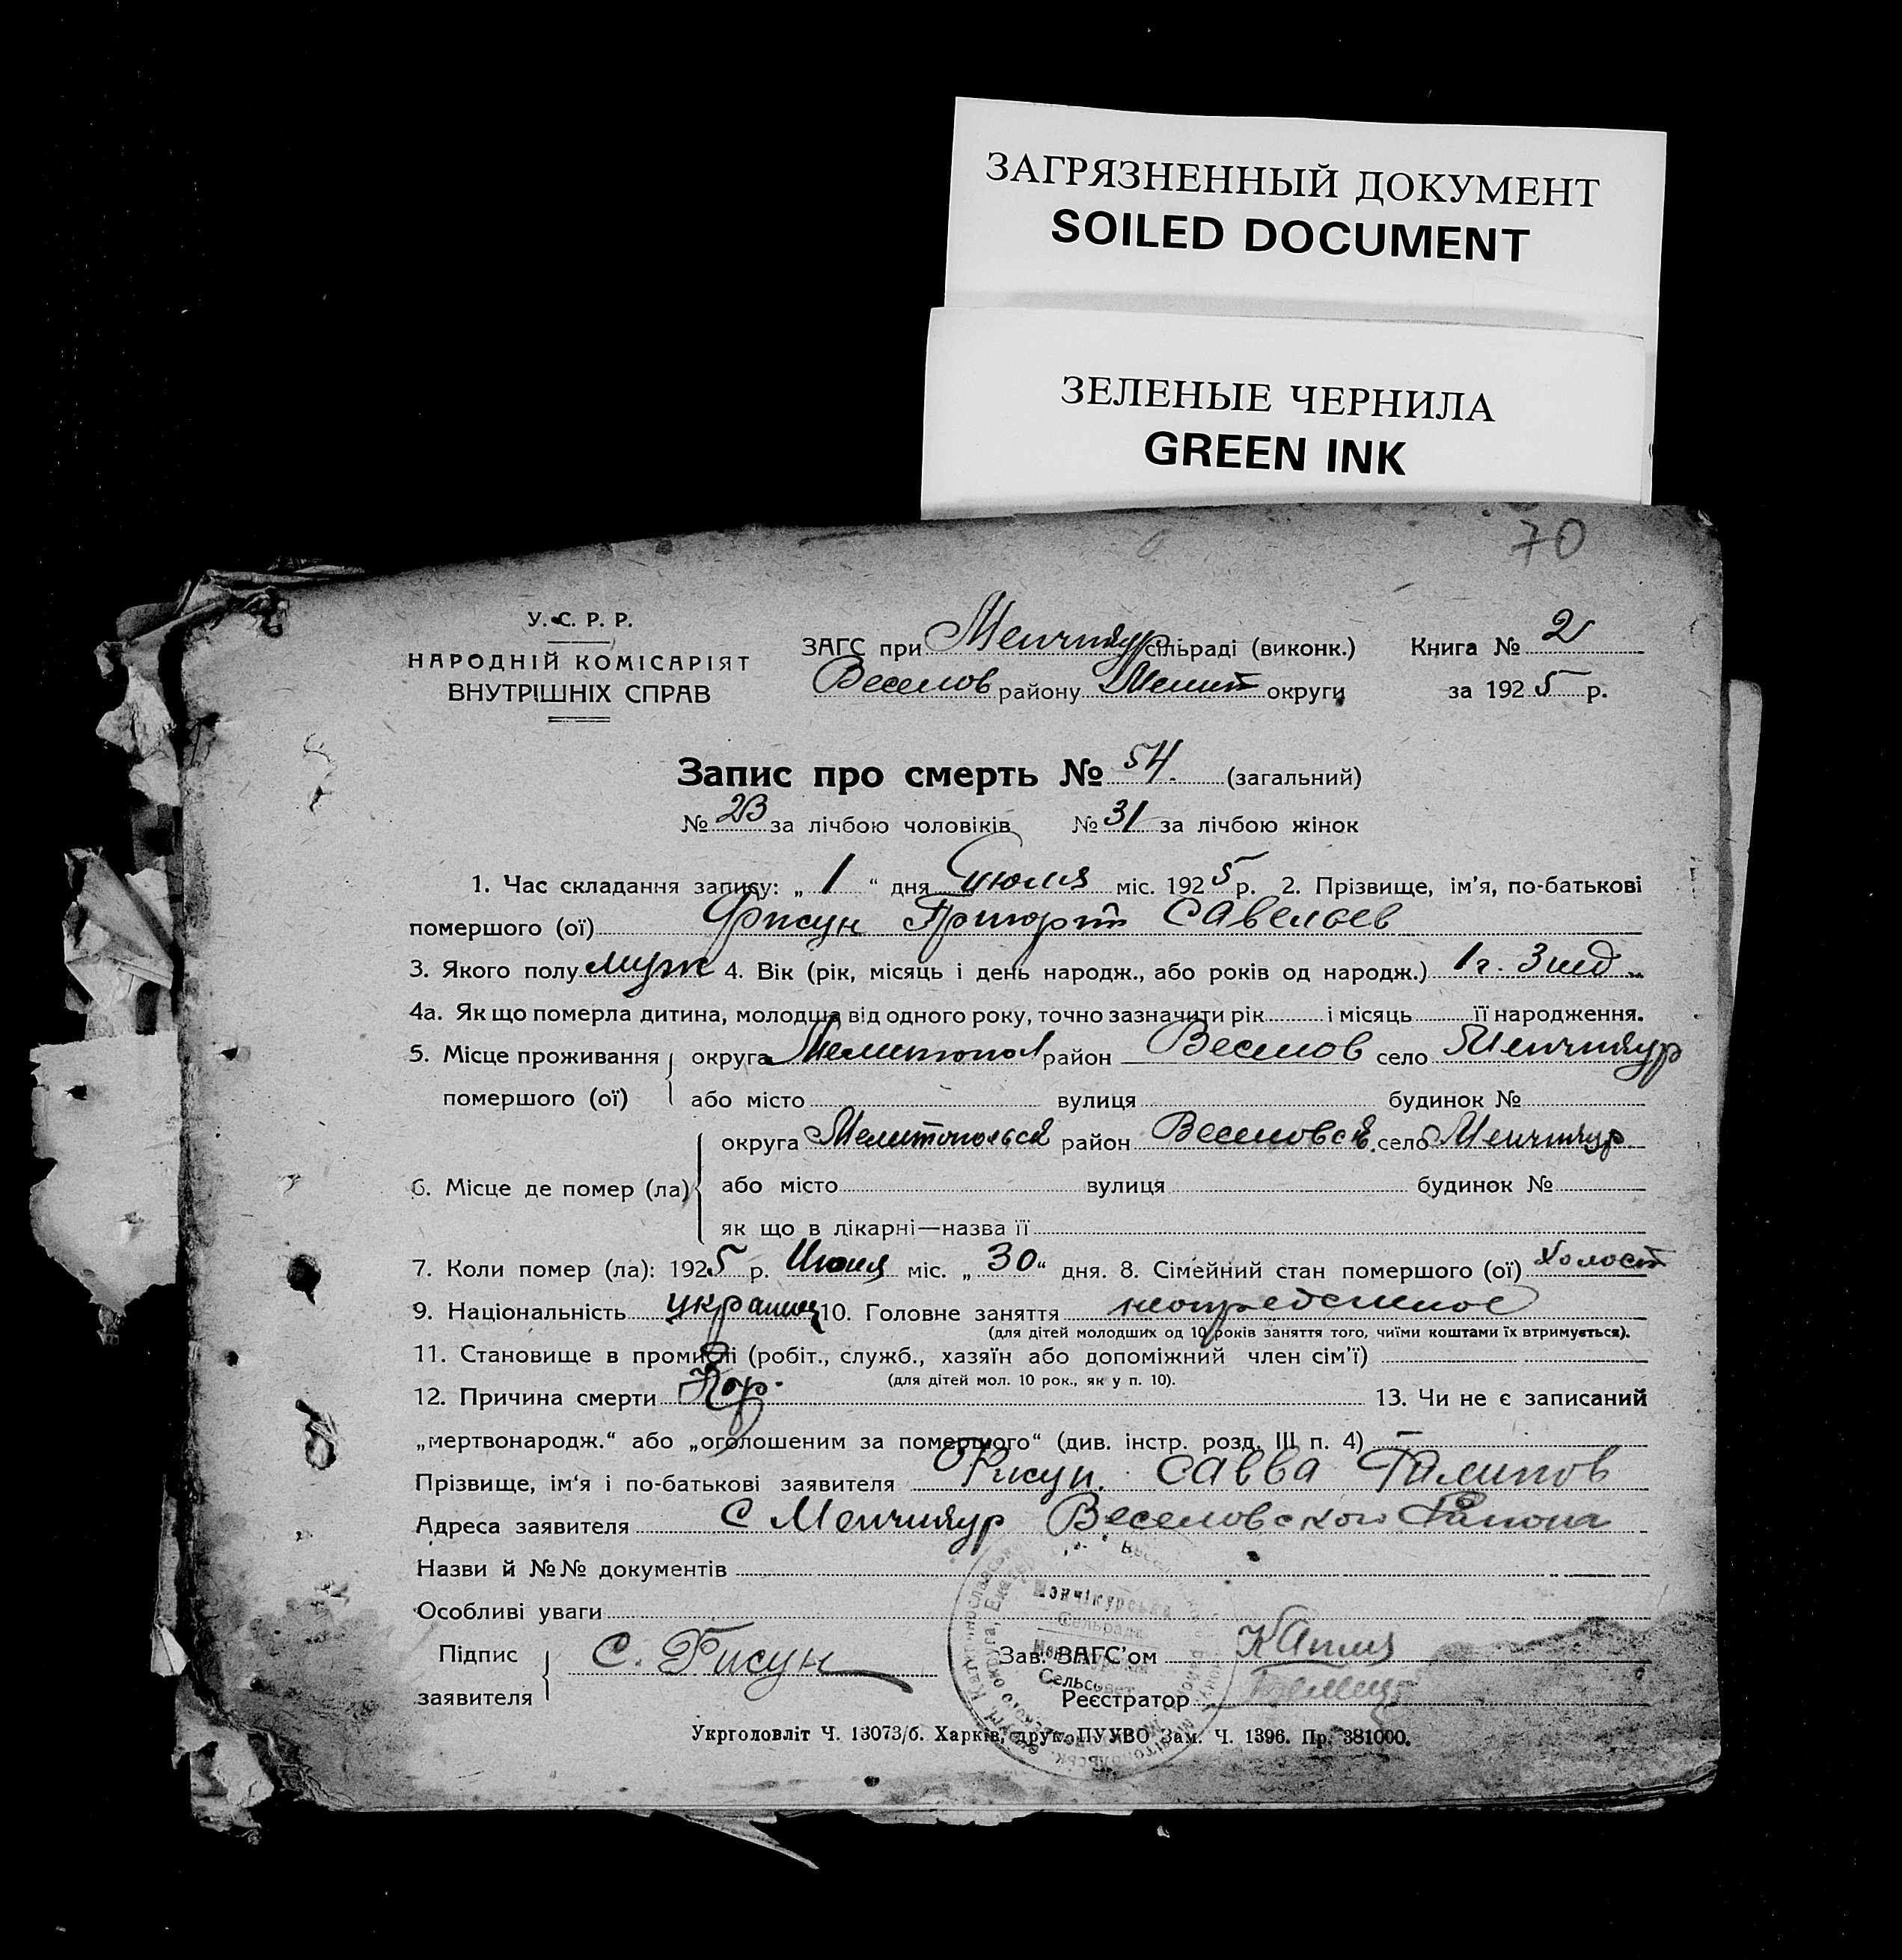 ЗАГРЯЗНЕННЫЙ ДОКУМЕНТ
SOILED DOCUMENT
ЗЕЛЕНЫЕ ЧЕРНИЛА
GREEN INK
70
У. С. Р. Р.
НАРОДНІЙ КОМІСАРІЯТ
ВНУТРІШНІХ СПРАВ
ЗАГС при Менчикур сільраді (виконк.) Книга № 2
Веселов району Мелит округи за 1925 р.
Запис про смерть № 54. (загальний)
№ 23 за лічбою чоловіків № 31 за лічбою жінок
1. Час складання запису: „ 1 “ дня июля міс. 1925 р. 2. Прізвище, ім'я, по-батькові
помершого (ої) Фисун Григорій Савельев
3. Якого полу муж 4. Вік (рік, місяць і день народж., або років од народж.) 1 г. 3
4а. Як що померла дитина, молодша від одного року, точно зазначити рік і місяць її народження.
5. Місце проживання округа Мелитопол район Веселов село Менчикур
помершого (ої) або місто вулиця будинок №
округа Мелитопольск район Веселовск. село Менчикур
6. Місце де помер (ла) або місто вулиця будинок №
як що в лікарні—назва її
7. Коли помер (ла): 1925 р. Июня міс. „ 30 “ дня. 8. Сімейний стан помершого (ої) холост
9. Національність украинец 10. Головне заняття неопределенное
(для дітей молодших од 10 років заняття того, чиїми коштами їх втримується).
11. Становище в промислі (робіт., служб., хазяїн або допоміжний член сім'ї)
(для дітей мол. 10 рок., як у п. 10).
12. Причина смерти Кор. 13. Чи не є записаний
„мертвонародж.“ або „оголошеним за помершого“ (див. інстр. розд. III п. 4) —
Прізвище, ім'я і по-батькові заявителя Фисун. Савва
Адреса заявителя С Менчикур Веселовского Района
Назви й №№ документів
Особливі уваги
Підпис заявителя С. Фисун
Зав. ЗАГС'ом
Реєстратор
Менчікурська
Сельрада
Сельсовет
Укрголовліт Ч. 13073/б. Харків, друк. ПУУВО Зам. Ч. 1396. Пр. 381000.